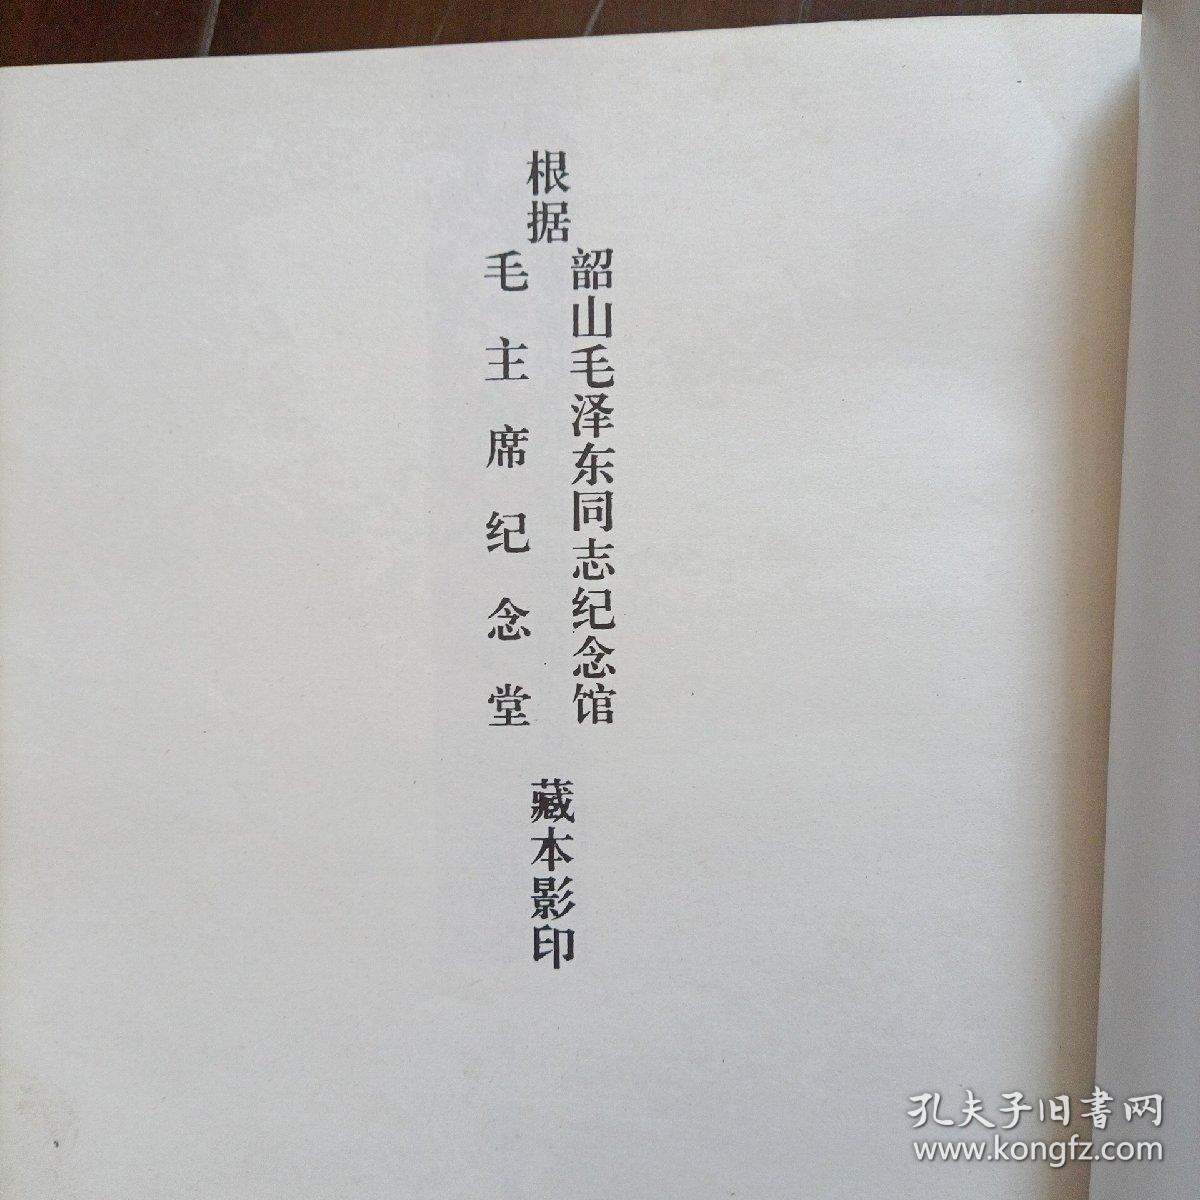 根据
韶山毛泽东同志纪念馆
毛主席纪念堂
藏本影印
孔夫子旧书网
www.kongfz.com